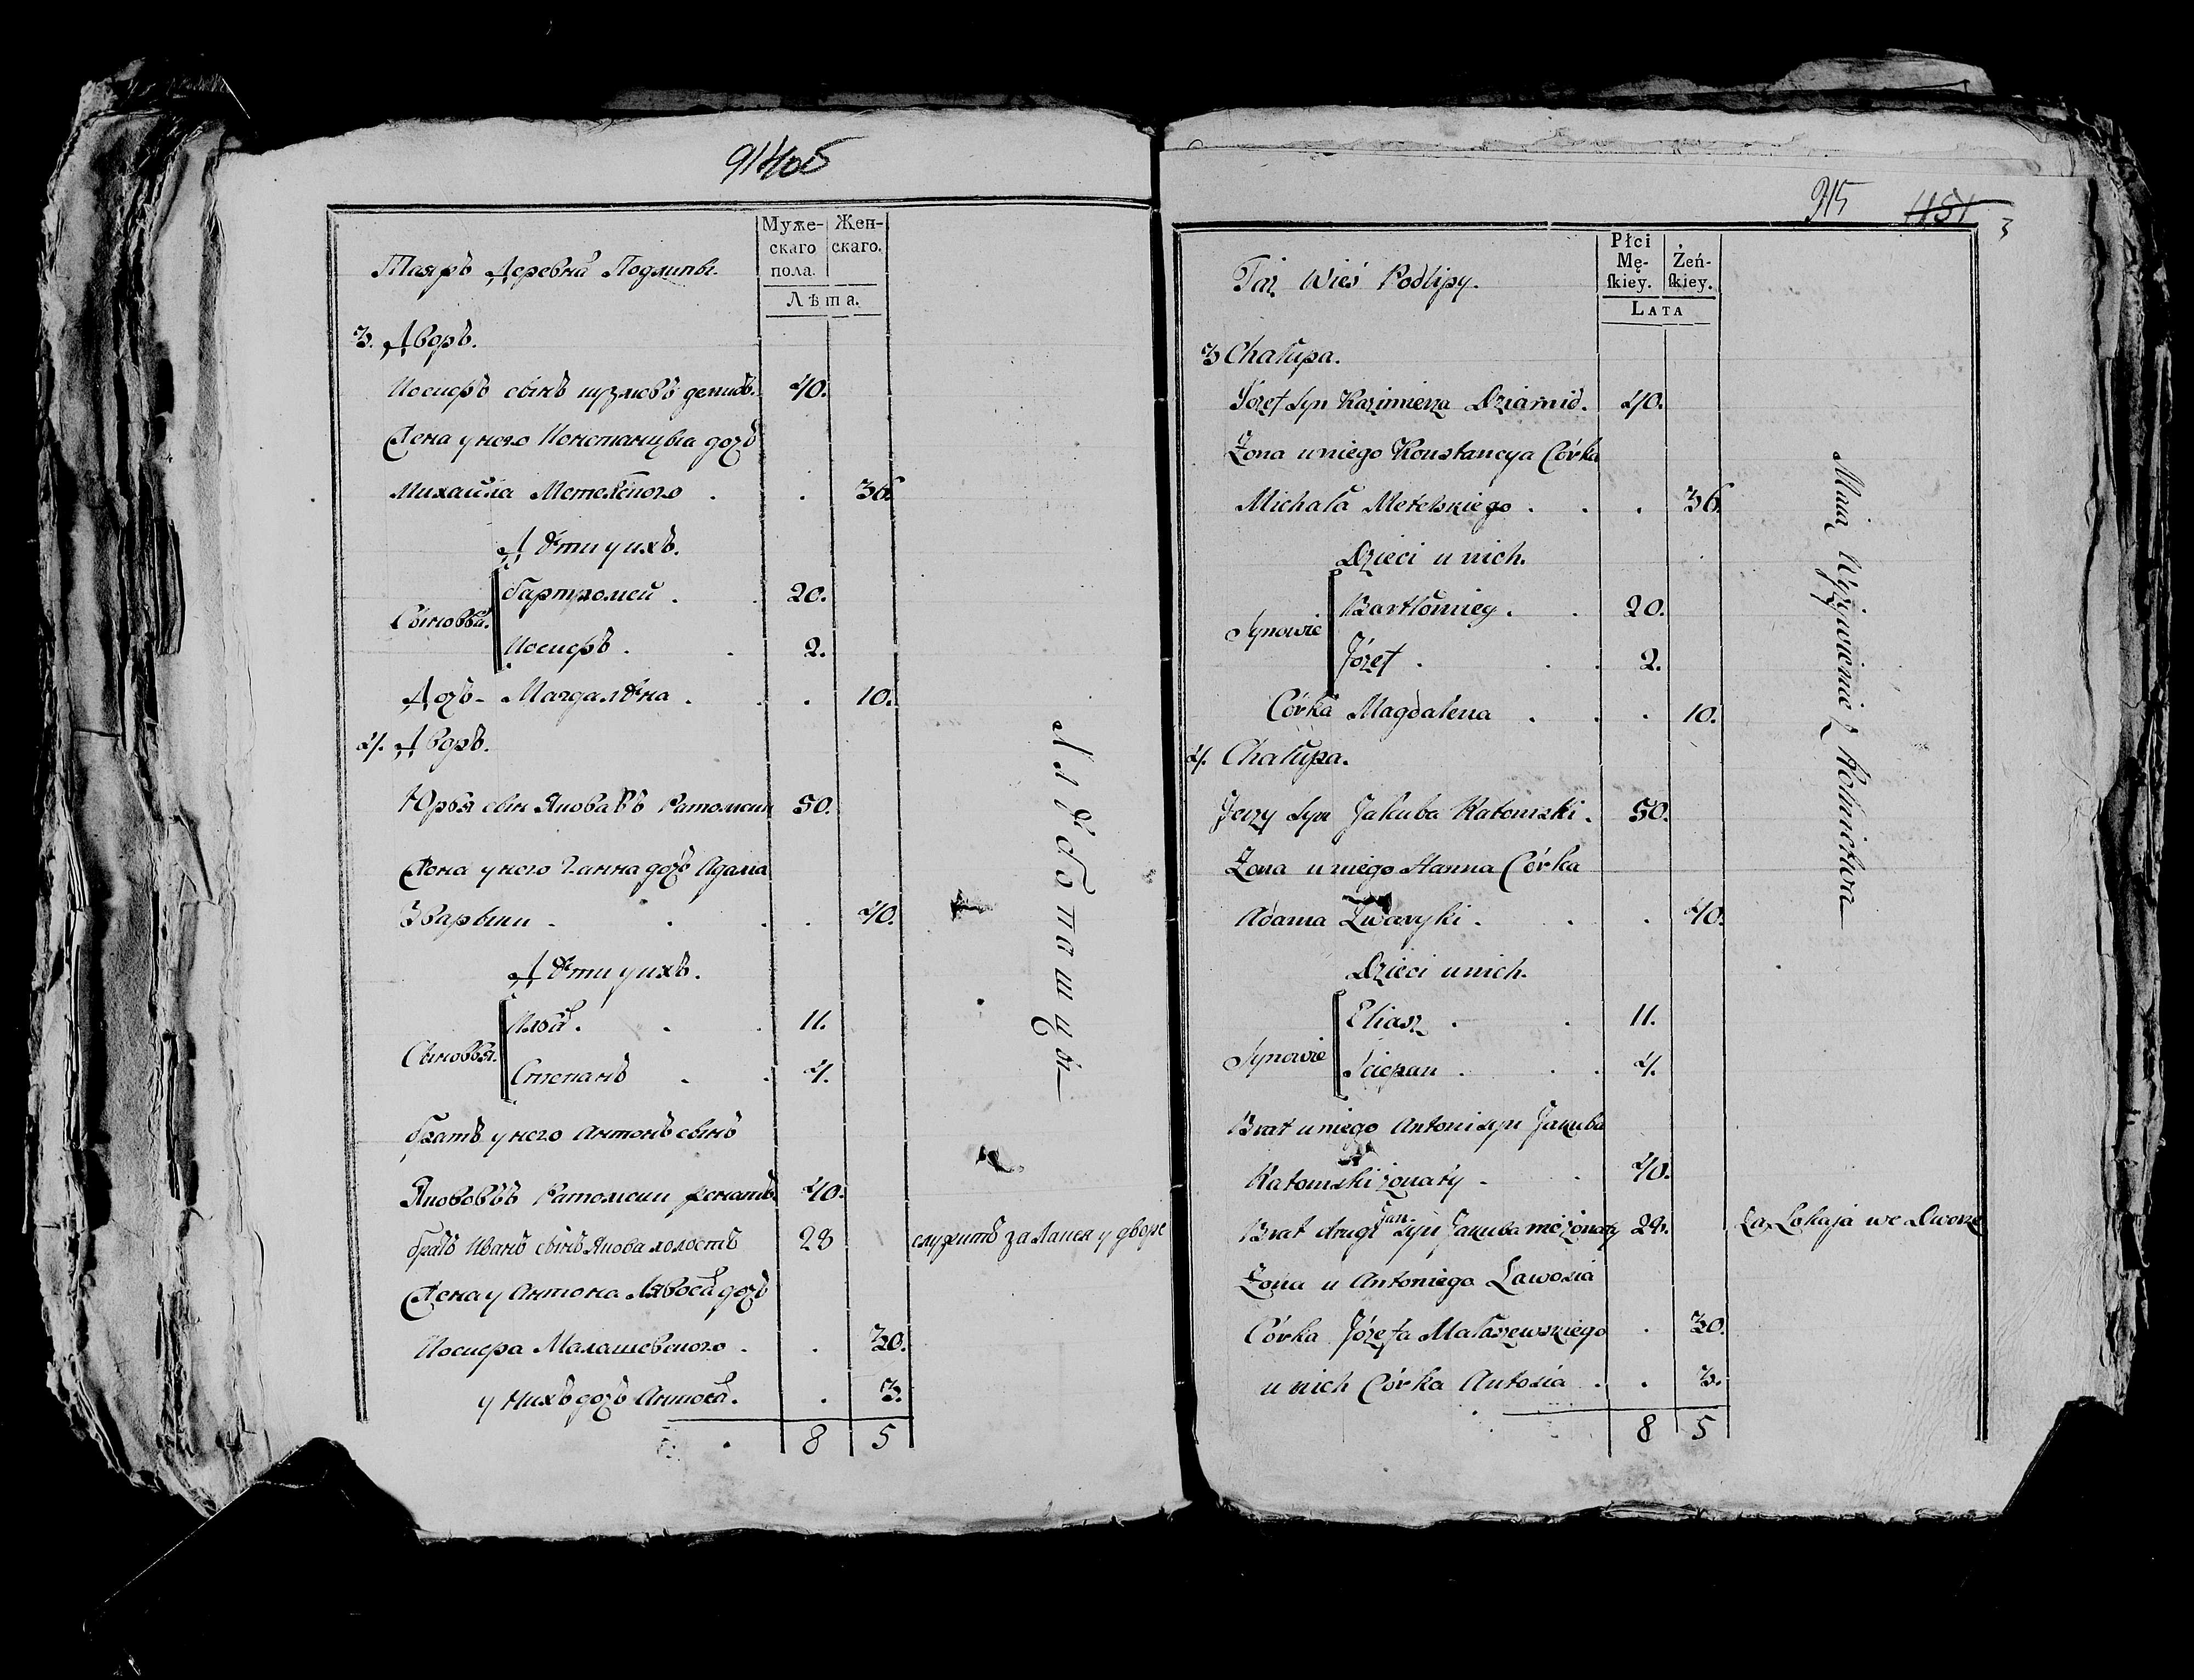 914
Мужескаго пола.
Женскаго.
Лѣта.
Таяжъ Деревня Подлипы.
3. Дворъ.
Иосифъ сынъ 40.
Жена у него Констанцыя дочь
Михайла Метельского . . 36.
Дѣти у ихъ.
Сыновья. Бартломей . 20.
Иосифъ . . 2.
Дочь - Магдалѣна . . . 10.
4. Дворъ.
Юрья сын Якова Катомски 50.
Жена у него Ганна дочь Адама
Зварыки . . . . 40.
Дѣти у ихъ.
Сыновья. Илья . . . 11.
Степанъ . . 4.
братъ у него Антонъ сынъ
Катомски женатъ 40.
братъ Иванъ сынъ Якова холостъ 28 служитъ за Лакея у дворе
Жена у Антона дочь
Иосифа Малашевского . . 30.
у нихъ дочь Антося . . 3.
8 5
915
1151
3
Płci Męskiey.
Żeńskiey.
LATA
Taż Wieś Podlipy.
3 Chałupa.
Józef Syn Kazimierza Dziamid. 40.
Żona u niego Konstancya Córka
Michała Metelskiego . . . 36.
Dzieci u nich.
Synowie Bartłomiey . . 20.
Józef . . . 2.
Córka Magdalena . . . 10.
4. Chałupa.
Jerzy Syn Jakuba Katomski . 50.
Żona u niego Hanna Córka
Adama Zwaryki . . . 40.
Dzieci u nich.
Synowie Eliasz . . 11.
Sciepan . . . 4.
Brat u niego Antoni syn Jakuba
Katomski żonaty . . 40.
Brat drugi Jan Syn Jakuba nieżonaty 28. Za Lokaja we Dworze
Żona u Antoniego Ławosia
Córka Józefa Małaszewskiego . 30.
u nich Córka Antosia . . 3.
8 5
Maią Wyżywienie z Rolnictwa